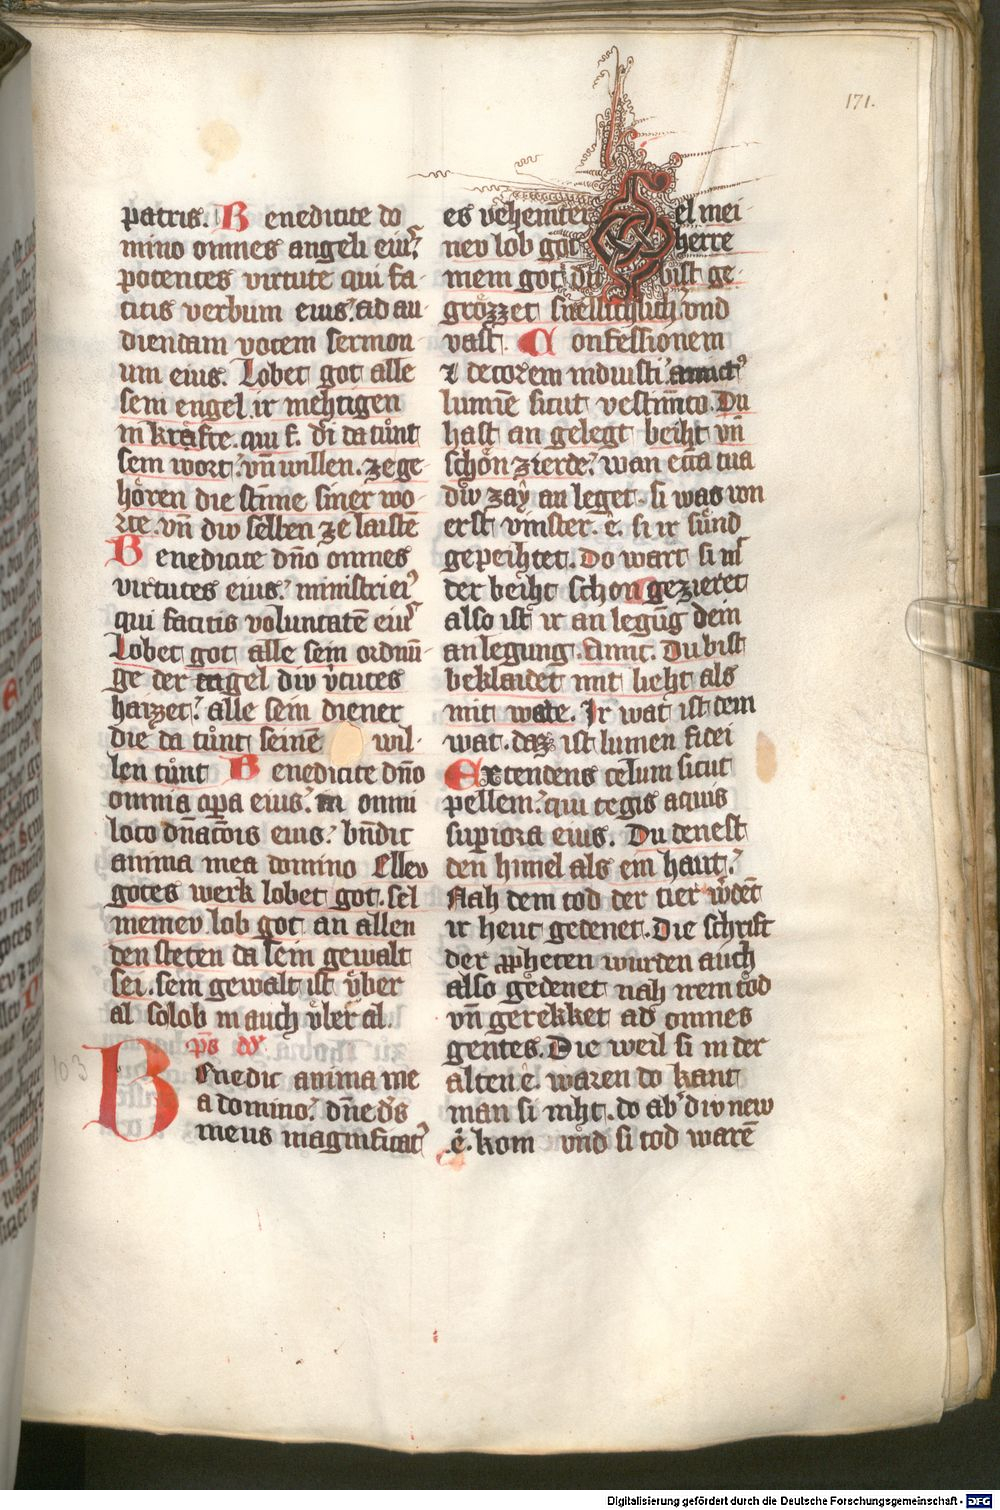 171.
patris. Benedicite do
mino omnes angeli eiuſ:
potentes virtute qui fa-
citis verbum eius: ad au-
diendam vocem sermon-
um eius. Lobet got alle
sein engel ir mehtigen
in kräfte. qui f. di da tůnt
sein wort: vn̄ willen. ze ge-
hören die stīme siner wo-
rte. vn̄ diw selben ze laistē
Benedicite dn̄o omnes
virtutes eius: ministri ei9
qui facitis voluntatē eiuſ
Lobet got alle sein ordnū-
ge der engel diw v̓tutes
haizzet: alle sein diener
die da tůnt seinē wil-
len tůnt Benedicite dn̄o
omnia oꝑa eius: in omni
loco dn̄acōis eius: bn̄dic
anima mea domino Ellev
gotes werk lobet got. sel
meinev lob got an allen
den steten da sein gewalt
sei. sein gewalt ist v̊ber
al so lob in auch v̊ber al.
p̄s dd̄
Benedic anima me
a domino: dn̄e ds̄
meus magnificat9
es vehemter Sel mei
nev lob got herre
mein got du bist ge-
grözzet snellichlich: vnd
vast. Confessionem
⁊ decorem induisti: amict9
lumīe sicut vestimēto. Du
hast an gelegt beiht vn̄
schön zierde: wan ecc̄a tua
diw
an leget. si was von
erst vinster. ê. si ir sünd
gepeihtet. Do wart si uſ
der beiht schon gezieret
also ist ir an legūg dem
an legung. Amic. Du bist
beklaidet mit lieht als
mit wate. Ir wat ist dein
wat. daz ist lumen fidei
Extendens celum sicut
pellem: qui tegis aquis
suꝑiora eius. Du denest
den himel als ein haut:
Nah dem tod der tier w̓dēt
ir heut gedenet. Die schrift
der ꝓpheten wurden auch
also gedenet nah irem tod
vn̄ gerekket ad omnes
gentes. Die weil si in der
alten ê. waren do kant
man si niht. do ab̓ diw new
.ê. kom vnd si tod warē
103
Digitalisierung gefördert durch die Deutsche Forschungsgemeinschaft - DFG